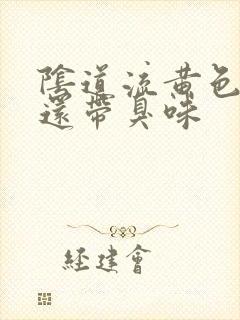 陰道流黄色
還帶臭味
经建會